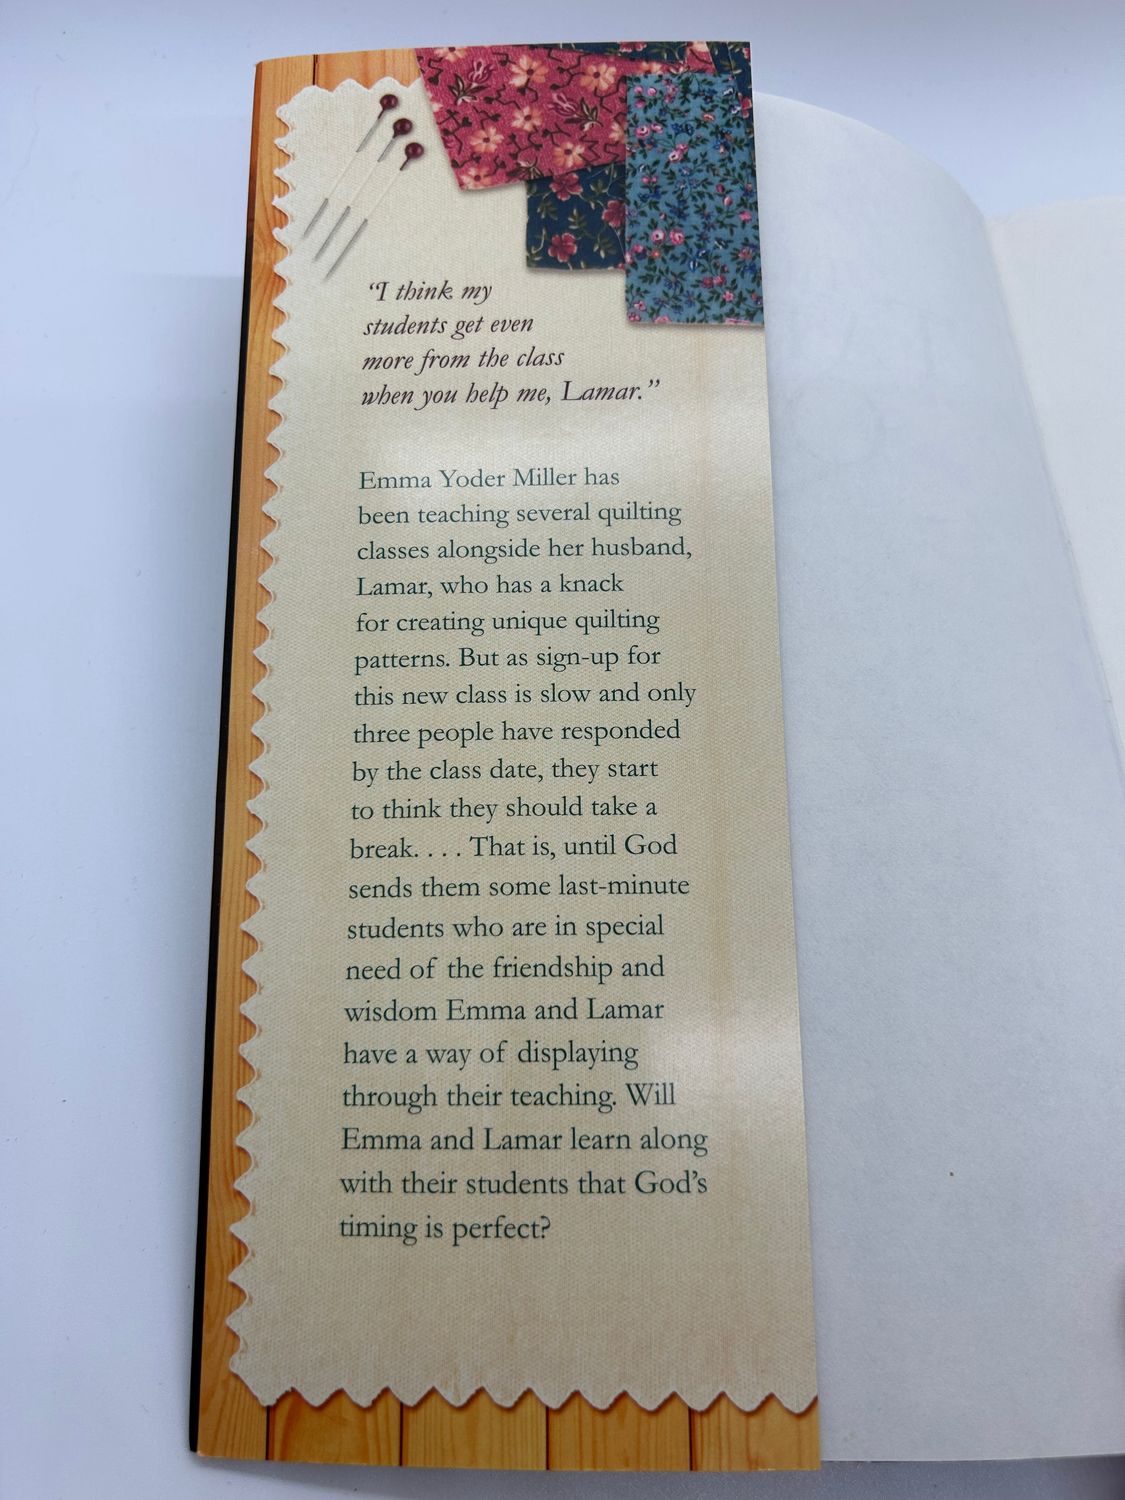 “I think my
students get even
more from the class
when you help me, Lamar.”
Emma Yoder Miller has
been teaching several quilting
classes alongside her husband,
Lamar, who has a knack
for creating unique quilting
patterns. But as sign-up for
this new class is slow and only
three people have responded
by the class date, they start
to think they should take a
break. . . . That is, until God
sends them some last-minute
students who are in special
need of the friendship and
wisdom Emma and Lamar
have a way of displaying
through their teaching. Will
Emma and Lamar learn along
with their students that God’s
timing is perfect?